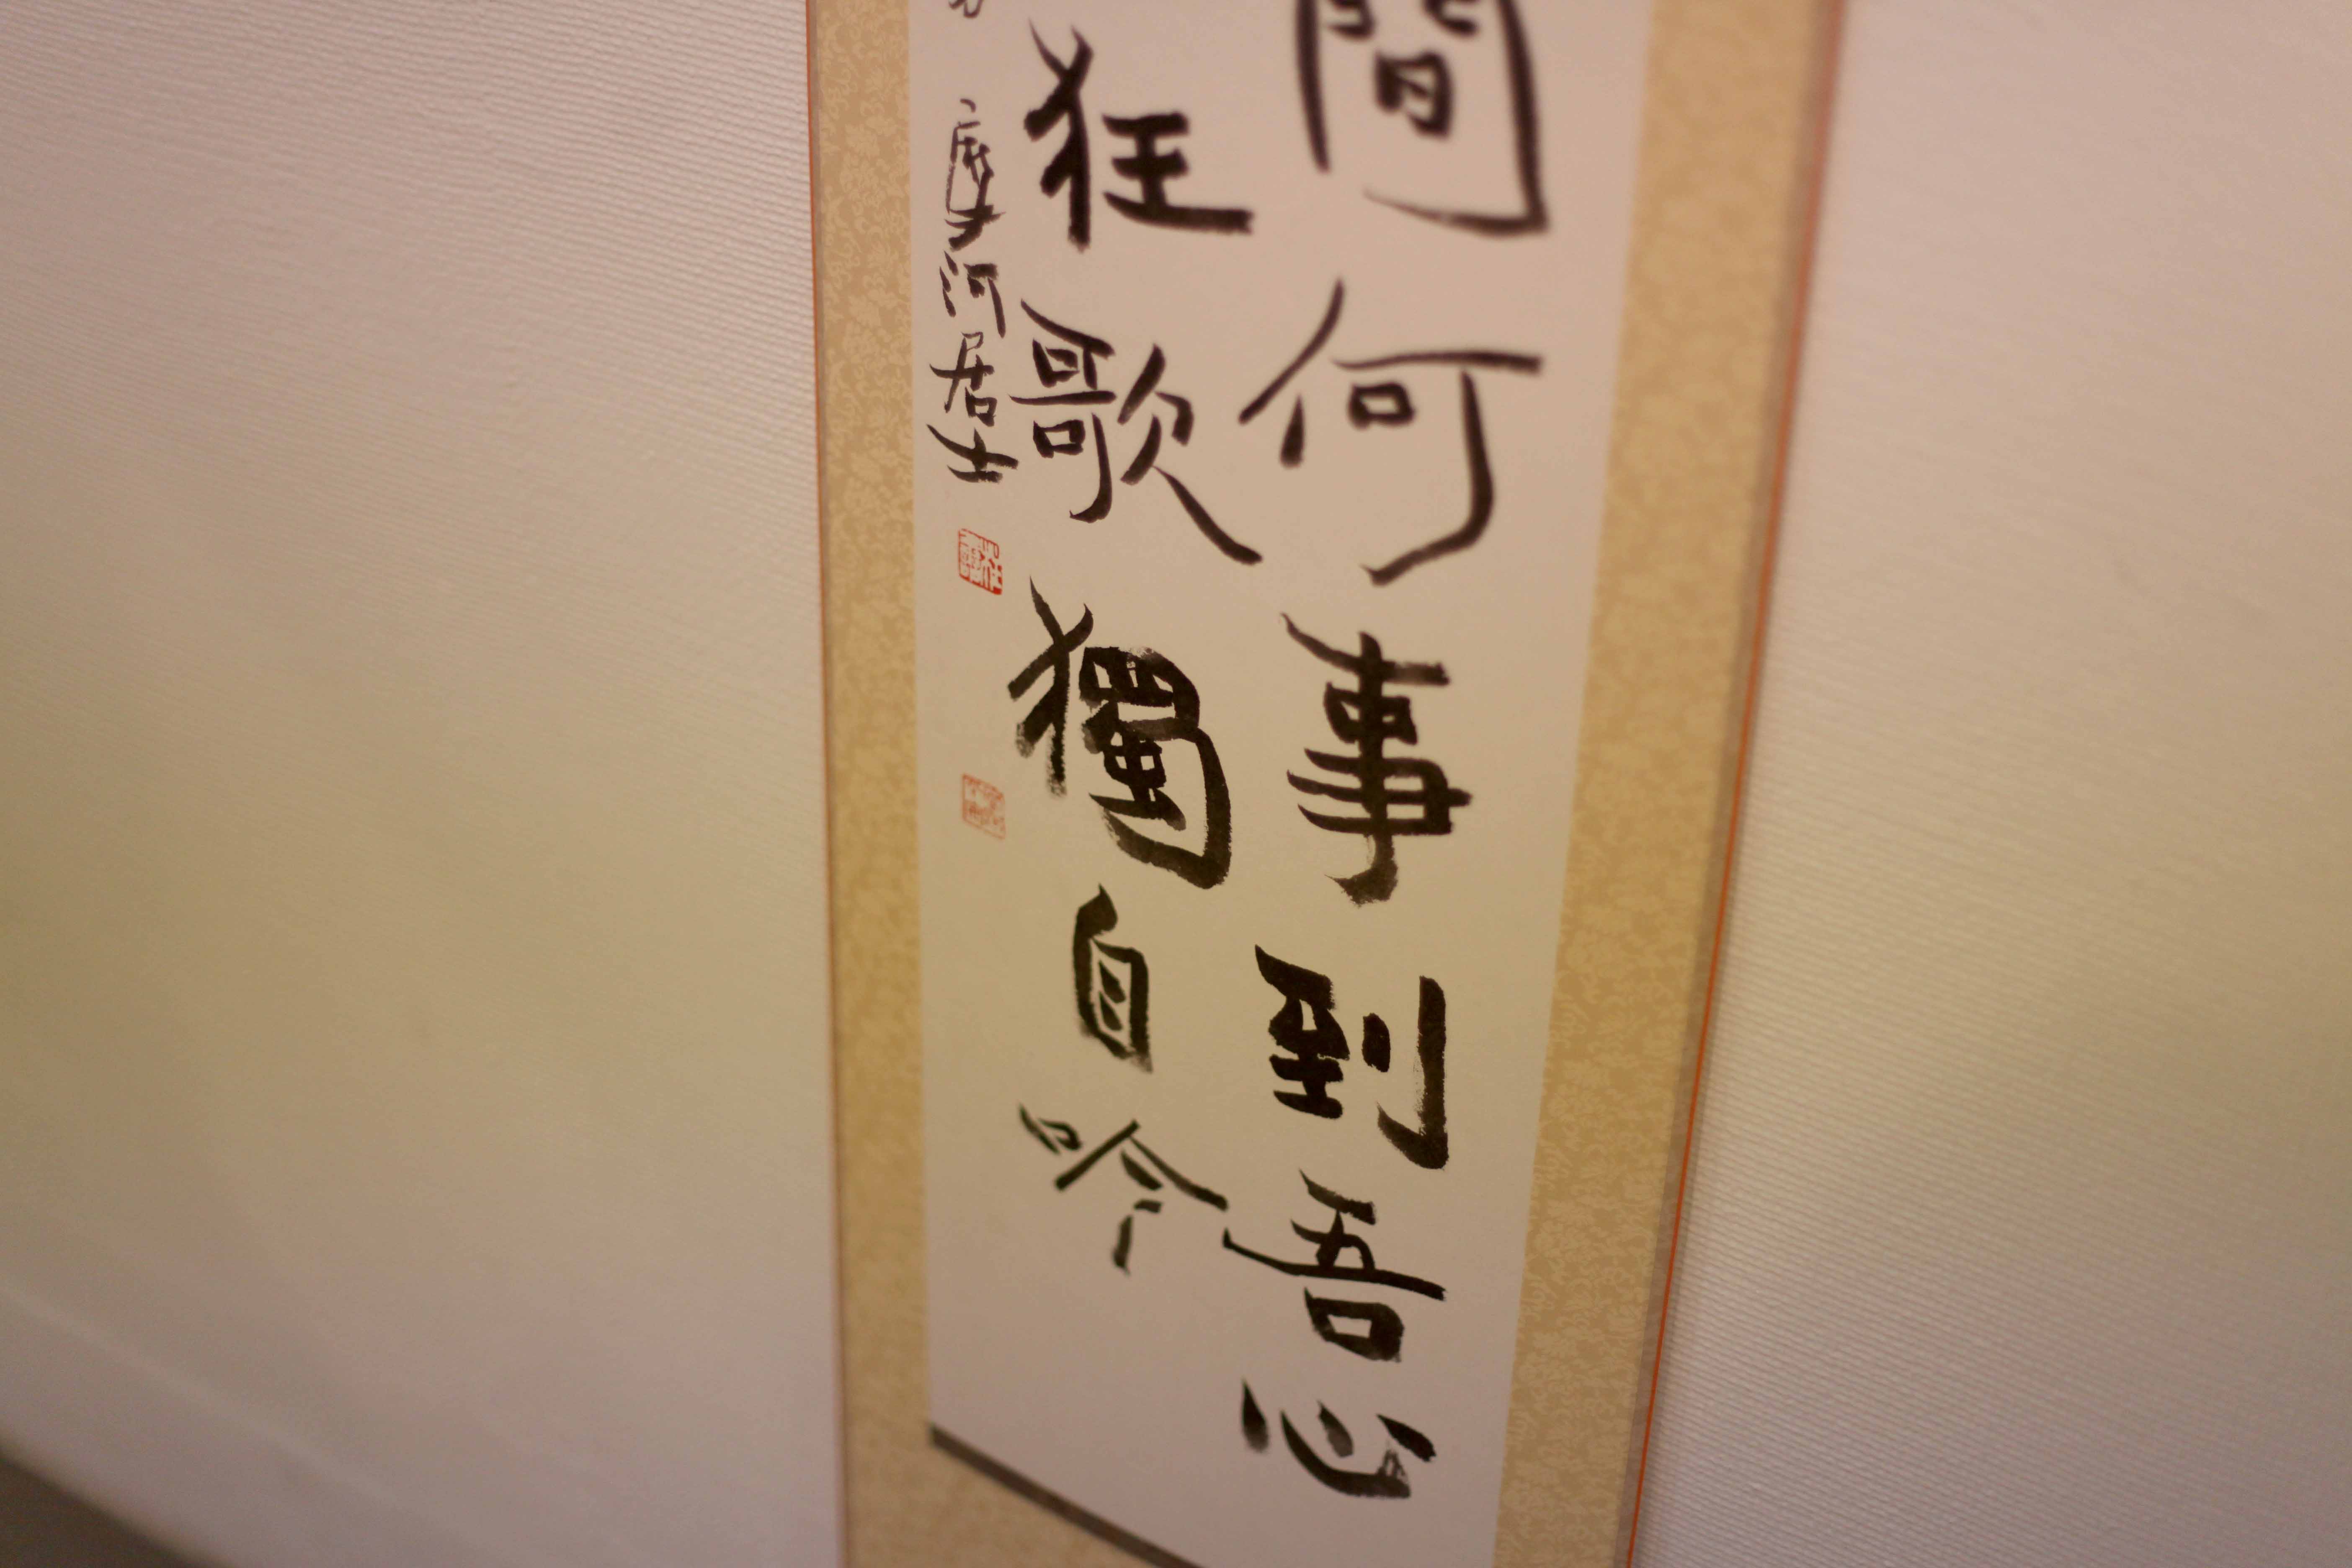 間何事到吾心
狂歌獨自吟
摩河居士